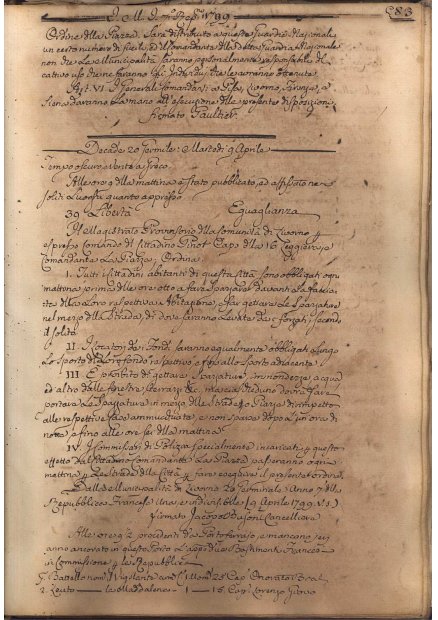 683
Ordine della Piazza. Sarà distribuito a questa Guardia Nazionale
un certo numero di fucili, ed il Comandante della detta Guardia Nazionale
non che la Municipalità saranno responsabile del
cattivo uso che ne faranno gli Individui che le avranno ottenute.
Art. VI. I Generali Comandanti a Pisa, Livorno, Firenze, e
Siena daranno la mano all'esecuzione delle presenti disposizioni
firmato Gaultier.
Decade 20 Germile: Martedì 9 Aprile
Tempo oscuro, e vento a Greco.
Alle ore 9 della mattina è stato pubblicato, ed affisso ne
soliti luoghi quanto appresso
39 Libertà Eguaglianza
Il Magistrato Provvisorio della Comunità di Livorno
espresso comando del Cittadino Pinot Cap. della 16 Leggiera, e
Comandante la Piazza, Ordina.
I. Tutti i Cittadini abitanti di questa Città sono obbligati ogni
mattina prima delle ore otto a fare spazzare davanti la facciata
della loro respettiva Abitazione, e far gettare le Spazzature
nel mezzo della Strada, di dove saranno levate dai forzati, secondo
il solito.
II. I locatori dei Fondi saranno egualmente obbligati lungo
lo sporto del loro fondo respettivo, e fino allo sporto adiacente.
III. È proibito di gettare Spazzature, immondezze, acqua
ed altro dalle finestre, terrazzi &c. ma ciascheduno dovrà fare
portare le Spazzature in mezzo delle Strade, o Piazze dirimpetto
alle respettive case ammucchiata, e non scorse dopo un ora di
notte, e fino alle ore sei della mattina.
IV. I Commissari di Polizia specialmente incaricati a questo
effetto dal Cittadino Comandante la Piazza passeranno ogni
mattina le Strade della Città fare eseguire il presente ordine.
Dalla Municipalità di Livorno 20 Germinale Anno 7 della
Repubblica Francese Una e indivisibile (9 Aprile 1799. V.S.)
firmato Jacopo Cancelliere
Alle ore 9 2 procedenti da Portoferraio e mancono sei
anno ancorato in questo Porto l'appiè due Bastimenti Francesi
in Commissione la Repubblica
Battello nom. il Vigilante 23 Cap. Onorato
2. Leuto la Maddalena 1 - 15 Cap. Lorenzo